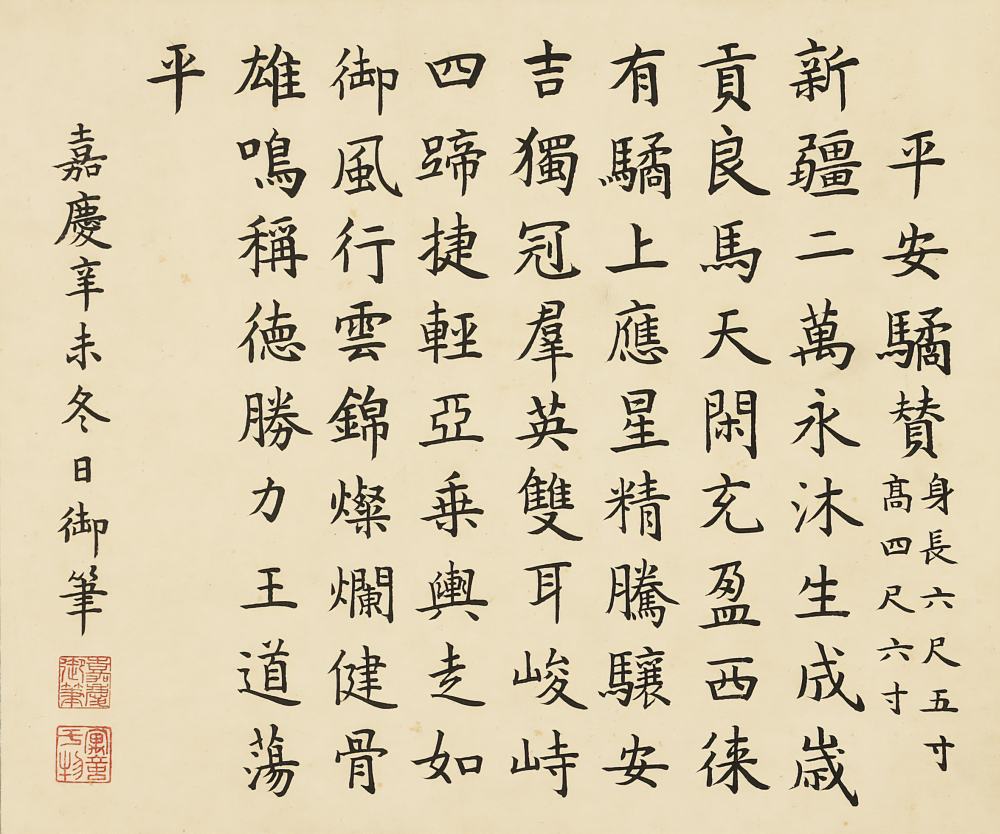 平安驈賛身長六尺五寸
高四尺六寸
新疆二萬永沐生成歲
貢良馬天閑充盈西徠
有驈上應星精騰驤安
吉獨冠羣英雙耳峻峙
四蹄捷輕亞乗輿走如
御風行雲錦燦爛健骨
雄鳴稱德勝力王道蕩
平
嘉慶辛未冬日御筆
嘉慶
御筆